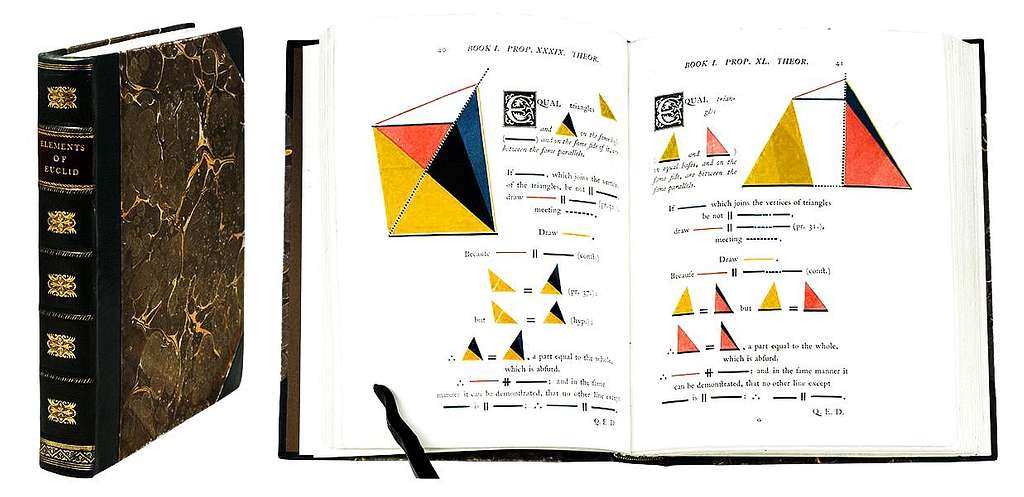 ELEMENTS
OF
EUCLID
40 BOOK I. PROP. XXXIX. THEOR.
EQUAL triangles
and
in the ſame
and on the ſame ſide of it, are
between the ſame parallels.
If , which joins the
of the triangles, be not ||
draw ||
meeting .
Draw .
Becauſe || (conſt.)
= (pr. 37.):
but = (hyp.);
∴ = , a part equal to the whole,
which is abſurd.
∴ ; and in the ſame
manner it can be demonſtrated, that no other line except
is || ; ∴ || .
Q. E. D.
BOOK I. PROP. XL. THEOR. 41
EQUAL trian-
gles
( and )
on equal baſes, and on the
ſame ſide, are between the
ſame parallels.
If , which joins the vertices of triangles
be not || ,
draw || (pr. 31.),
meeting .
Draw .
Becauſe || (conſt.)
= but =
∴ = , a part equal to the whole,
which is abſurd.
∴ ; and in the ſame manner it
can be demonſtrated, that no other line except
is || : ∴ || .
Q. E. D.